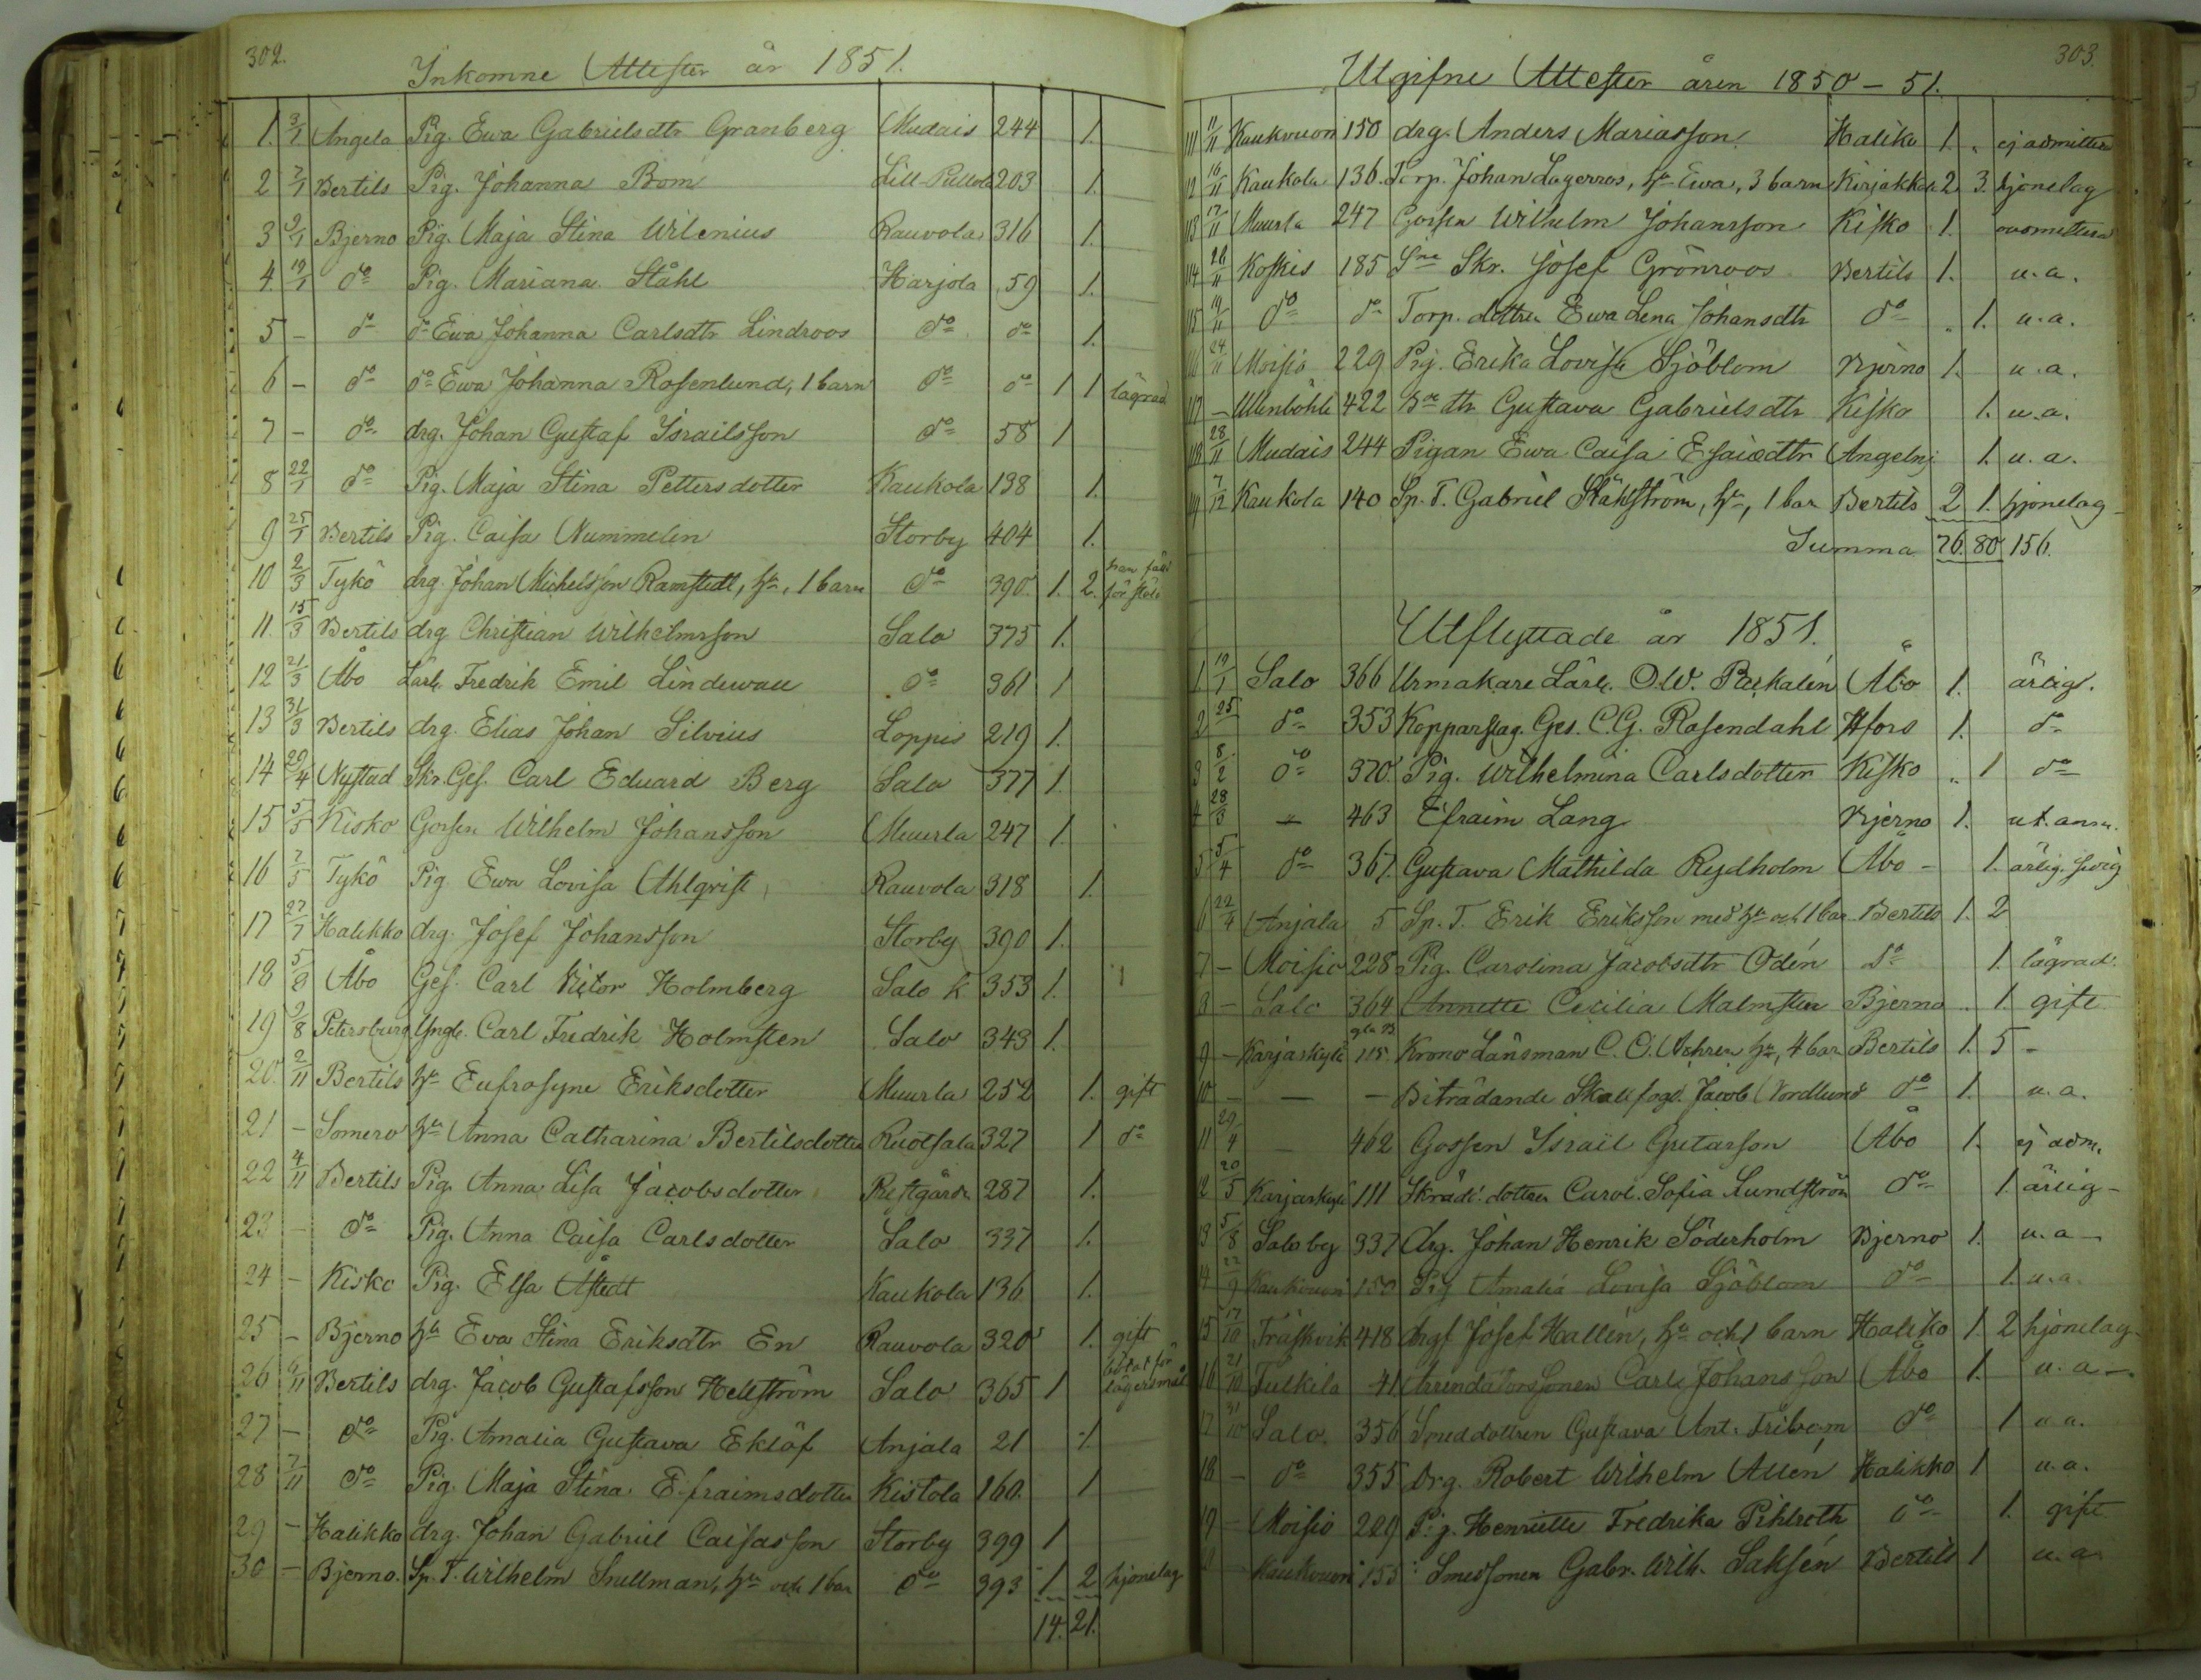 302.
Inkomne Attester år 1851.
1. 3/1 Angela Pig. Ewa Gabrielsdtr Granberg Mudais 244 1.
2 7/1 Bertils Pig. Johanna Bom Lill-Pullola 203 1.
3 9/1 Bjerno Pig. Maja Stina Wilenius Rauvola 316 1.
4. 19/1 do Pig. Mariana Ståhl Harjola 59 1.
5 - do do Ewa Johanna Carlsdtr Lindroos do do 1.
6 - do do Ewa Johanna Rosenlund, 1 barn do do 1 1 lägrad
7 - do drg. Johan Gustaf Israilsson do 58 1
8 22/1 do Pig. Maja Stina Pettersdotter Kaukola 138 1.
9 25/1 Bertils Pig. Caisa Nummelin Storby 404 1.
10 2/3 Tykö drg. Johan Michelsson Ramstedt, hu, 1 barn do 390. 1. 2. för stöld
11. 15/3 Bertils drg Christian Wilhelmsson Salo 375 1.
12 21/3 Åbo Lärl. Fredrik Emil Lindewall do 361 1
13 31/3 Bertils drg. Elias Johan Silvius Loppis 219 1.
14 29/4 Nystad Skr. Ges. Carl Eduard Berg Salo 377 1
15 5/5 Kisko Gossen Wilhelm Johansson Muurla 247 1.
16 7/5 Tykö Pig Ewa Lovisa Ahlqvist Rauvola 318 1.
17 27/7 Halikko drg. Josef Johansson Storby 390 1.
18 5/8 Åbo Ges. Carl Victor Holmberg Salo k 353 1.
19 9/8 Petersburg Yngl. Carl Fredrik Holmsten Salo 343 1.
20. 2/11 Bertils hu Eufrosyne Eriksdotter Muurla 252 1. gift
21 - Somero hu Anna Catharina Bertilsdotter Ruotsala 327 1 do
22 4/11 Bertils Pig. Anna Lisa Jacobsdotter Prestgård 287 1.
23 - do Pig. Anna Caisa Carlsdotter Salo 337 1.
24 - Kisko Pig. Elsa Åstedt Kaukola 136 1.
25 - Bjerno hu Eva Stina Eriksdtr En Rauvola 320 1. gift
26 6/11 Bertils drg. Jacob Gustafsson Hellström Salo 365 1 bötat för lägersmål
27 - do Pig. Amalia Gustava Eklöf Anjala 21 1
28 7/11 do Pig. Maja Stina Efraimsdotter Kistola 160. 1
29 - Halikko drg. Johan Gabriel Caisasson Storby 399 1
30 - Bjerno. Sp. T. Wilhelm Snellman, hu och 1 bar do 393 1 2 hjonelag
14. 21.
303.
Utgifne Attester åren 1850 - 51.
111 11/11 Kaukvuori 150 drg. Anders Mariasson Haliko 1. " ej admitter
112 16/11 Kaukola 136. Torp. Johan Lagerroos, hu Ewa, 3 barn Kirjakkala 2 3. hjonelag
113 17/11 Muurla 247 Gossen Wilhelm Johansson Kisko 1.
114 26/11 Koskis 185 Skr. Josef Grönroos Bertils 1. u. a.
115 19/11 do do Torp. dottren Ewa Lena Johansdtr do " 1. u. a.
116 24/11 Moisio 229 Pig. Erika Lovisa Sjöblom Bjerno 1. u. a.
117 - Ulenböhle 422 Gustava Gabrielsdtr Kisko 1. u. a.
118 28/11 Mudais 244 Pigan Ewa Caisa Esaiædtr Angelnj 1. u. a.
119 7/12 Kaukola 140 Sp. T. Gabriel Ståhlström, hu, 1 bar Bertils 2 1. hjonelag
Summa 76. 80 156.
Utflyttade år 1851.
1. 19/1 Salo 366 Urmakare Lärl. O.W. Åbo 1. ärlig.
2 25 do 353 Kopparslag. Ges. C.G. Rosendahl Hfors 1. do
3 8/2 do 370. Pig. Wilhelmina Carlsdotter Kisko " 1 do
4 28/3 - 463 Efraim Lang Bjerno 1. ut. anm.
5 5/4 do 367. Gustava Mathilda Rydholm Åbo - 1. ärlig.
6 22/4 Anjala 5 Sp. T. Erik Eriksson med hu och 1 bar Bertils 1. 2
7 - Moisio 228 Pig. Carolina Jacobsdtr Odén do 1. lägrad.
8 - Salo 364 Annette Cecilia Malmsten Bjerno " 1. gift
9 - Karjaskylä 115. Krono Länsman C. O. hu, 4 bar Bertils 1. 5 -
10 - - - Biträdande Skallfogd. Jacob Nordlund do 1. u. a.
11 29/4 - 462 Gossen Israil Gretasson Åbo 1. ej adm.
12 20/5 Karjaskylä 111 Skrädd. dottren Carol. Sofia Lundström do 1. ärlig -
13 5/8 Salo by 337 Drg. Johan Henrik Söderholm Bjerno 1. u. a -
14 22/9 Kaukvuori 150 Pig Amalia Lovisa Sjöblom do 1. u. a.
15 17/10 Träskvik 418 Josef Hallén, hu och 1 barn Haliko 1. 2 hjonelag
16 21/10 Tulkila 41 Arrendatorssonen Carl Johansson Åbo 1. u. a -.
17 31/10 Salo. 356 Smeddottren Gustava Ant. Tribom do 1 u a.
18 - do 355 Drg. Robert Wilhelm Allén Halikko 1 u. a.
19 - Moisio 229 Pig. Henriette Fredrika Pihlroth do 1. gift
Kaukvuori 155 Smedsonen Gabr. Wilh. Saksén Bertils 1 u. a